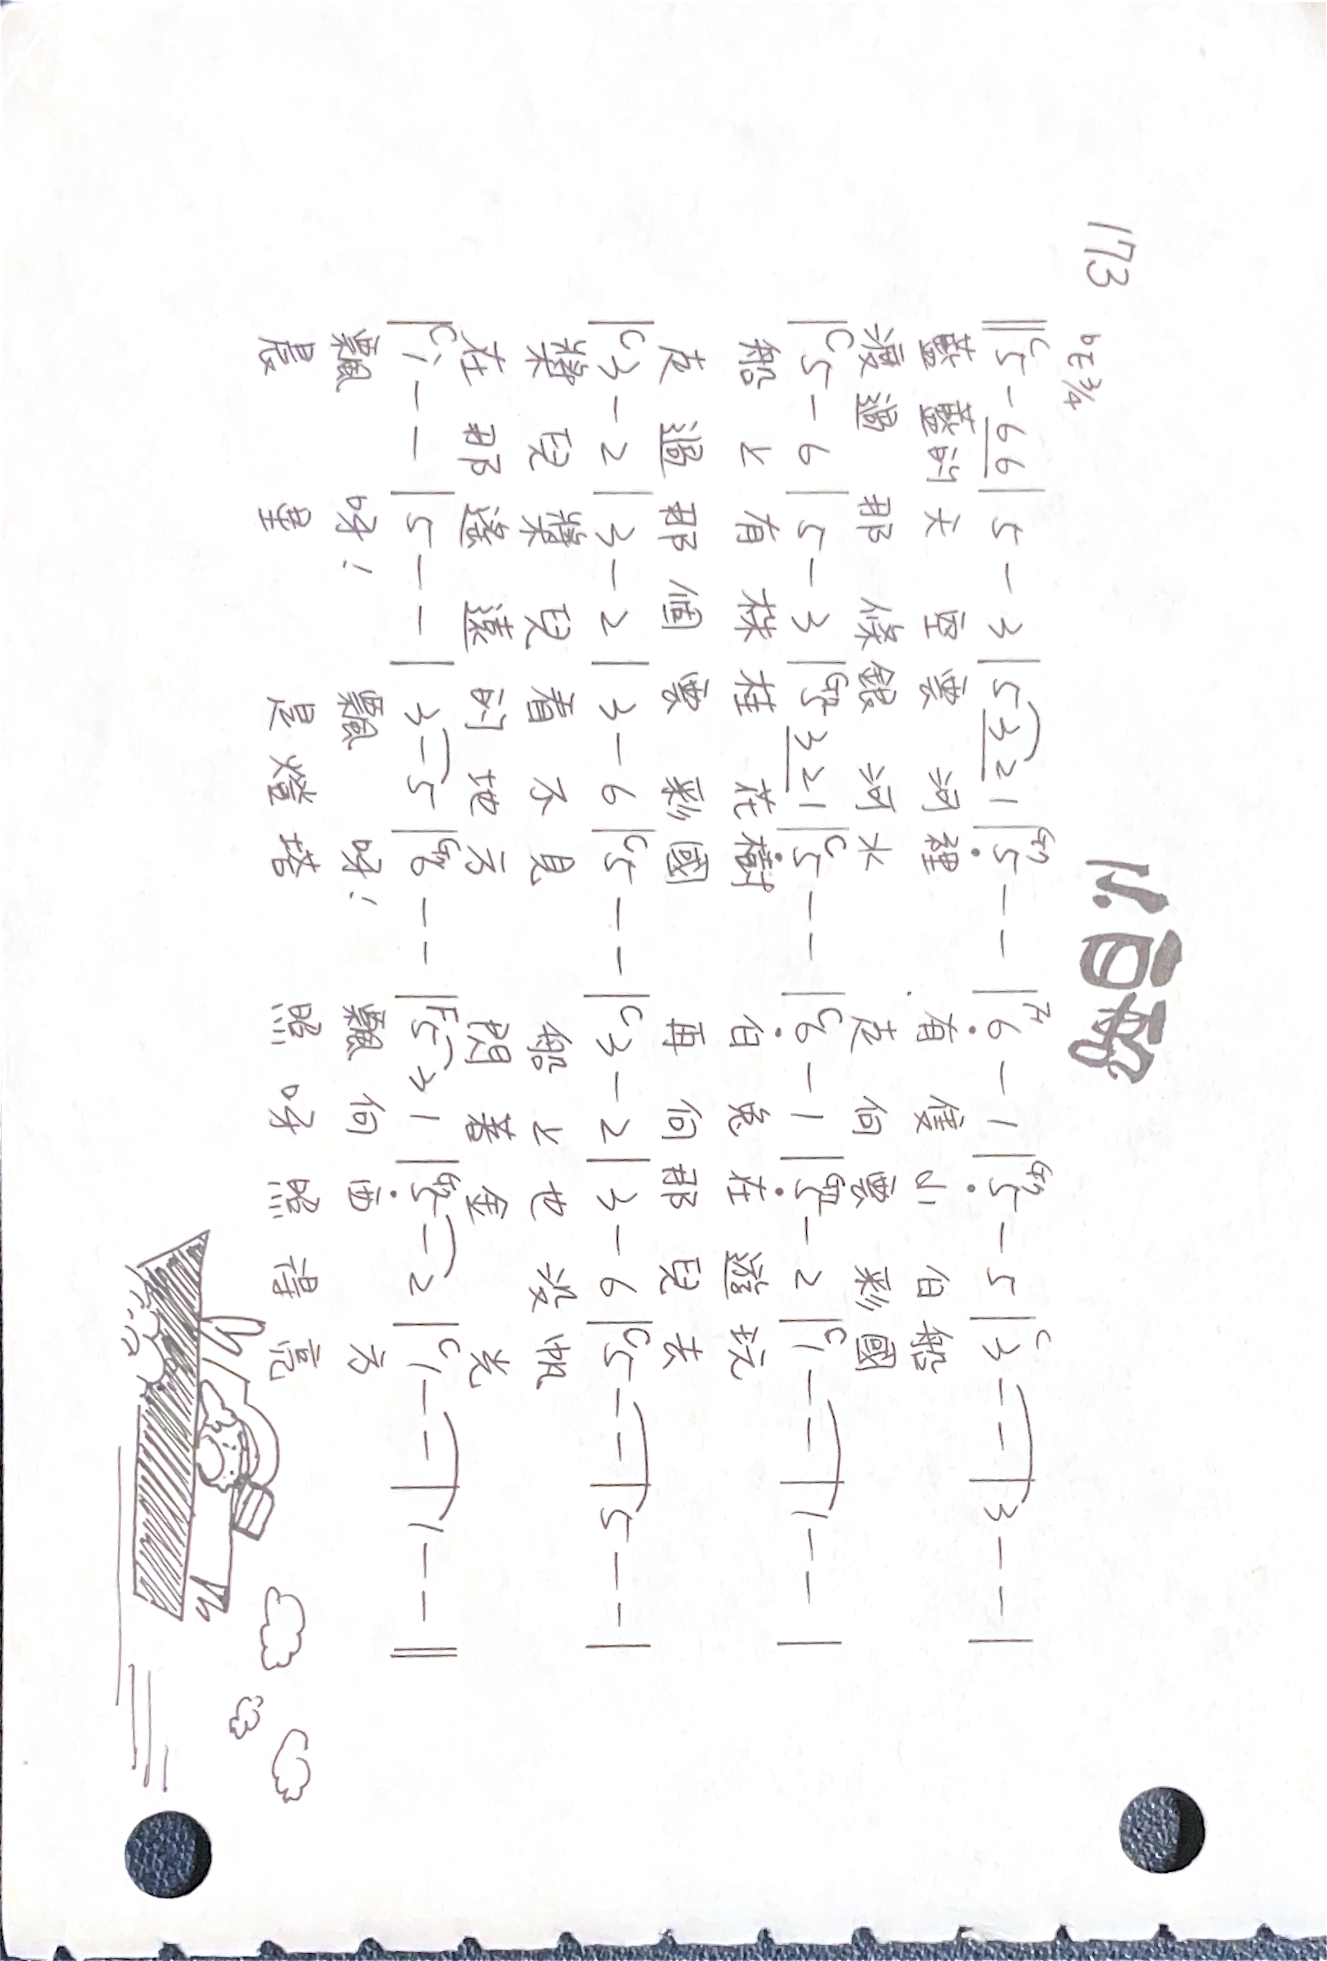 小白船
173
bE 3/4
‖C5 - 6 6 | 5 - 3 | 5 3 2 1 | G7 5 - - | F 6 - 1 | G7 5 - 5 | C 3 - - | 3 - - |
藍 藍的 天 空 雲 河 裡 有 隻 小 白 船
渡 過 那 條 銀 河 水 走 向 雲 彩 國
| C5 - 6 | 5 - 3 | G7 5 3 2 1 | C 5 - - | C 6 - 1 | G7 5 - 2 | C 1 - - | 1 - - |
船 上 有 株 桂 花 樹 白 兔 在 遊 玩
走 過 那 個 雲 彩 國 再 向 那 兒 去
| C3 - 2 | 3 - 2 | 3 - 6 | C5 - - | C3 - 2 | 3 - 6 | C5 - - | 5 - - |
槳 兒 槳 兒 看 不 見 船 上 也 沒 帆
在 那 遙 遠 的 地 方 閃 著 金 光
| C i - - | 5 - - | 3 - 5 | G7 6 - - | F 5 3 1 | G7 5 - 2 | C 1 - - | 1 - - ‖
飄 呀! 飄 呀! 飄 向 西 方
晨 星 是 燈 塔 照 呀 照 得 亮